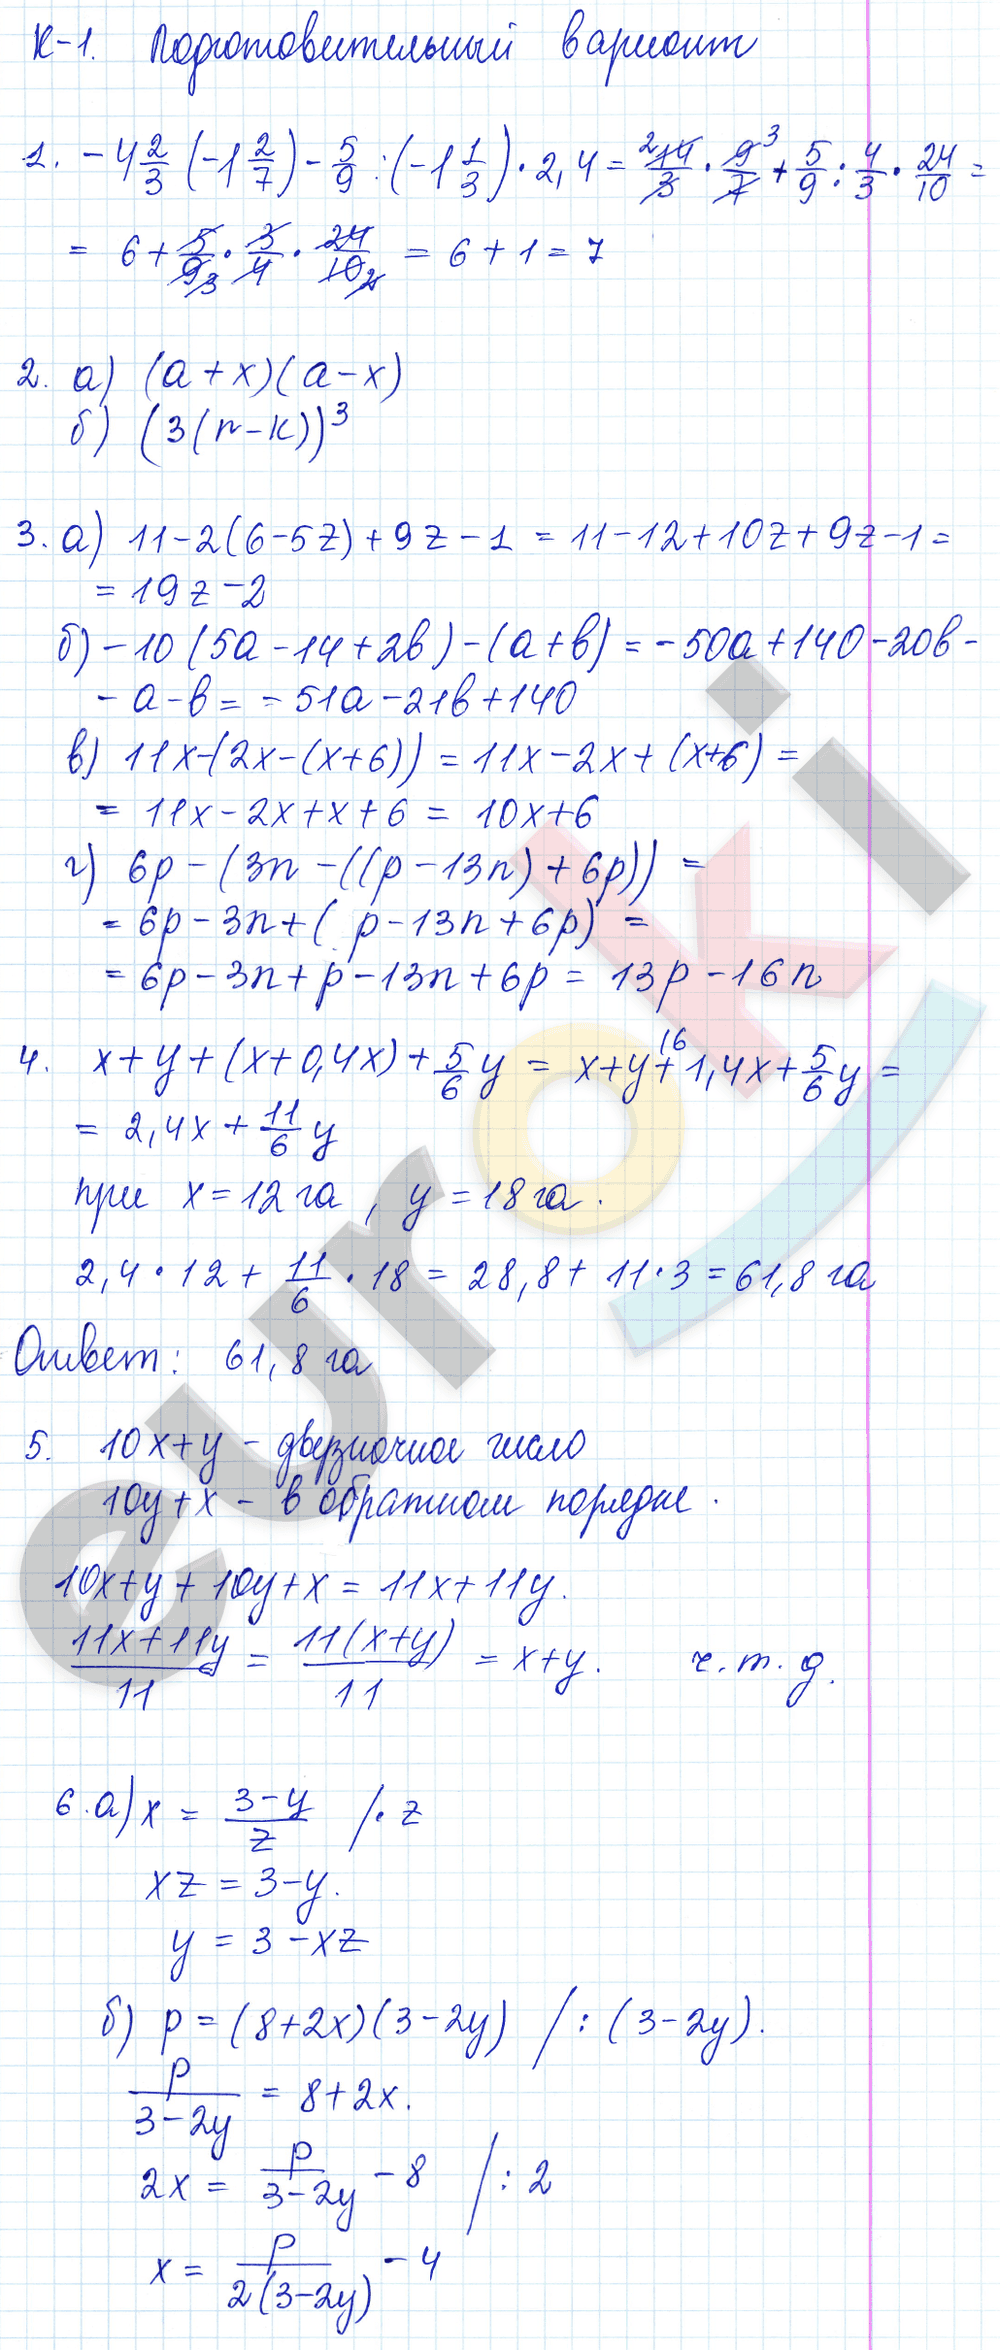 К-1. Подготовительный вариант
1. -4 2/3 (-1 2/7) - 5/9 : (-1 1/3) · 2,4 = 2 14/3 · 9/7 3 + 5/9 : 4/3 · 24/10 =
= 6 + 5/9 3 · 3/4 · 24/10 2 = 6 + 1 = 7
2. а) (a+x)(a-x)
б) (3(n-k))³
3. а) 11-2(6-5z)+9z-1 = 11-12+10z+9z-1=
= 19z-2
б) -10(5a-14+2b)-(a+b) = -50a+140-20b-
-a-b= -51a-21b+140
в) 11x-(2x-(x+6)) = 11x-2x+(x+6) =
= 11x-2x+x+6 = 10x+6
г) 6p-(3n-((p-13n)+6p)) =
= 6p-3n+(p-13n+6p) =
= 6p-3n+p-13n+6p = 13p-16n
4. x+y+(x+0,4x)+5/6 y = x+y+1,4x+5/6 y =
16
= 2,4x+11/6 y
при x=12 га, y=18 га.
2,4·12+11/6·18 = 28,8+11·3=61,8 га
Ответ: 61,8 га
5. 10x+y - двузначное число
10y+x - в обратном порядке.
10x+y+10y+x = 11x+11y.
11x+11y/11 = 11(x+y)/11 = x+y. ч.т.д.
6.а) x = 3-y/z /· z
xz = 3-y.
y = 3-xz
б) p = (8+2x)(3-2y) /: (3-2y).
p/3-2y = 8+2x.
2x = p/3-2y - 8 /: 2
x = p/2(3-2y) - 4
euroki